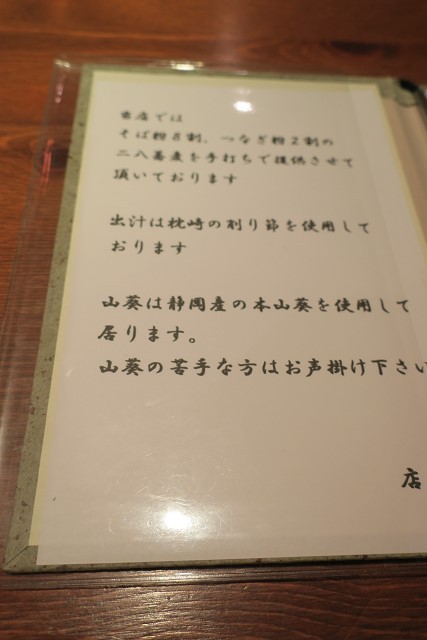 当店では
そば粉8割、つなぎ粉2割の
二八蕎麦を手打ちで提供させて
頂いております
出汁は枕崎の削り節を使用して
おります
山葵は静岡産の本山葵を使用して
居ります。
山葵の苦手な方はお声掛け下さい
店